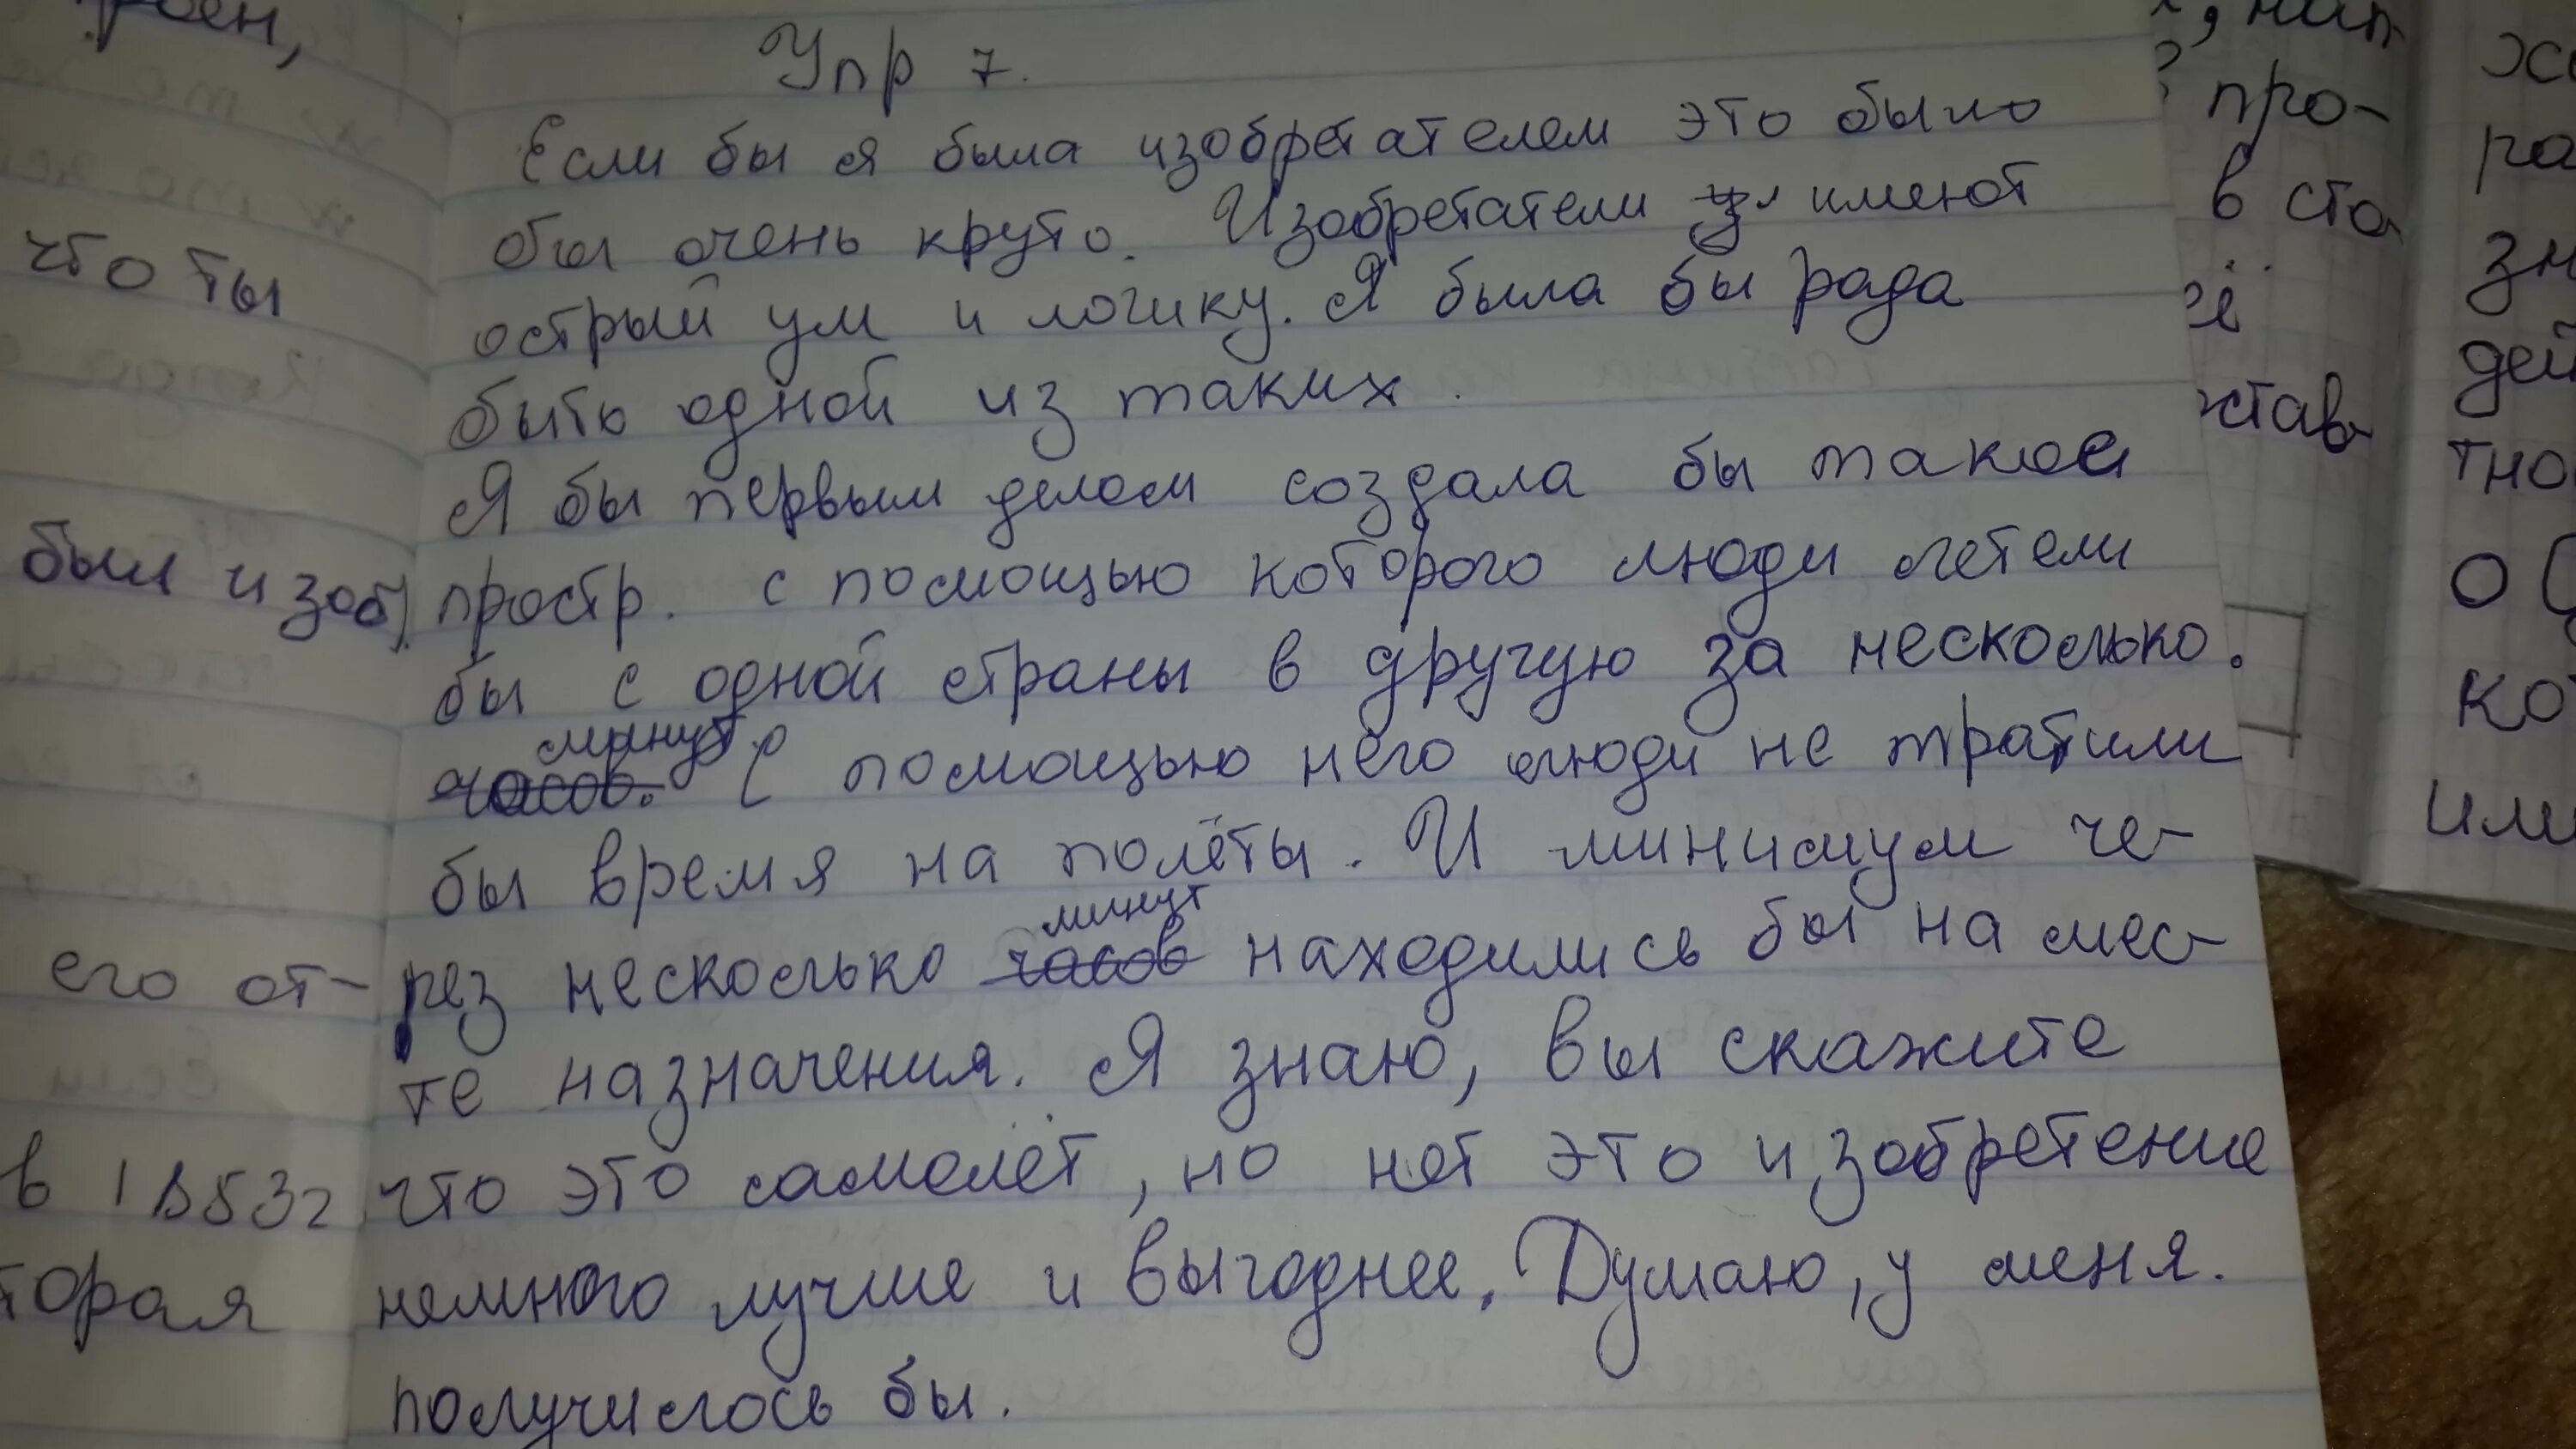 Упр 7.
Если бы я была изобретателем это было
бы очень круто. Изобретатели имеют
острый ум и логику. Я была бы рада
быть одной из таких.
Я бы первым делом создала бы такое
простр. с помощью которого люди летели
бы с одной страны в другую за несколько.
минут
часов. С помощью него люди не тратили
бы время на полёты. И минимум че-
минут
рез несколько часов находились бы на мес-
те назначения. Я знаю, вы скажите
что это самолёт, но нет это изобретение
немного лучше и выгоднее. Думаю, у меня.
получилось бы.
что ты
был изоб
его от-
в 1853г
торая
про-
в ста